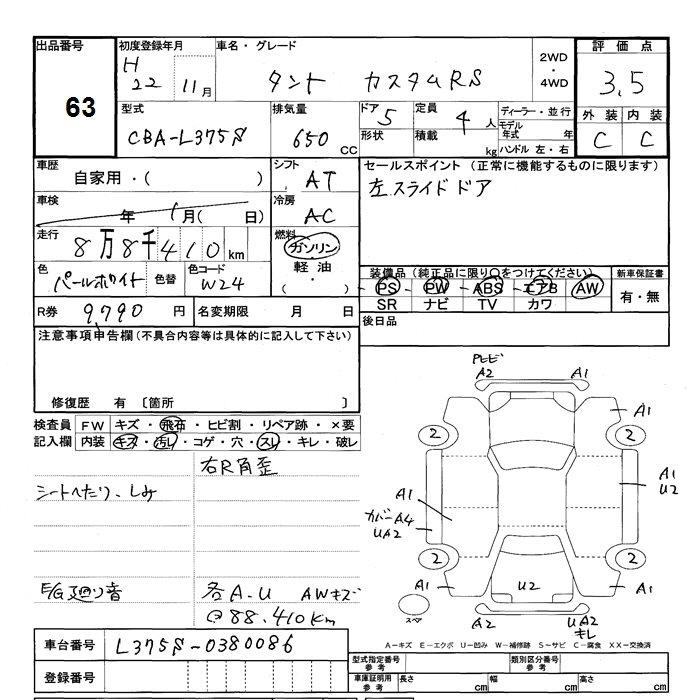 出品番号 初度登録年月 車名・グレード 2WD・4WD 評価点
63 H22 11月 タント カスタムRS 3.5
型式 排気量 ドア 5 定員 4人 ディーラー・並行 外装 内装
CBA-L375S 650 CC 形状 積載 kg モデル年式 年 C C
ハンドル 左・右
車歴 シフト セールスポイント (正常に機能するものに限ります)
自家用・( ) AT 左スライドドア
車検 年 1月( 日) 冷房 AC
走行 8万8千410km 燃料 ガソリン・軽油・( )
色 パールホワイト 色替 色コード W24
装備品(純正品に限り○をつけてください) 新車保証書
PS・PW・ABS・エアB AW 有・無
SR ナビ TV カワ
R券 9,790 円 名変期限 月 日 後日品
注意事項申告欄(不具合内容等は具体的に記入して下さい)
修復歴 有 〔箇所 〕
検査員 FW キズ・飛石・ヒビ割・リペア跡・×要
記入欄 内装 キズ・汚レ・コゲ・穴・スレ・キレ・破レ
右R角歪
シートへたり、しみ
E/G廻り音 各A.U AWキズ
@88.410Km
A2 A1
A1
2 2
A1 A1 U2
カバーA4
UA2
2 2
A1 U2 A1
スペア A2 UA2
キレ
車台番号 L375S-0380086
登録番号
A-キズ E-エクボ U-凹み W-補修跡 S-サビ C-腐食 XX-交換済
型式指定番号 参考 類別区分番号 参考
車庫証明用 参考 長さ cm 幅 cm 高さ cm